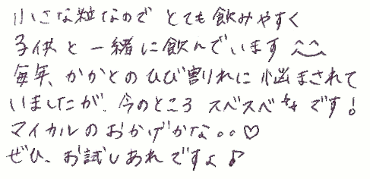 小さな粒なので とても飲みやすく
子供と一緒に飲んでいます ^^
毎年、かかとのひび割れに悩まされて
いましたが、今のところ スベスベ です!
マイカルのおかげかな。。♡
ぜひ、お試しあれですよ♪